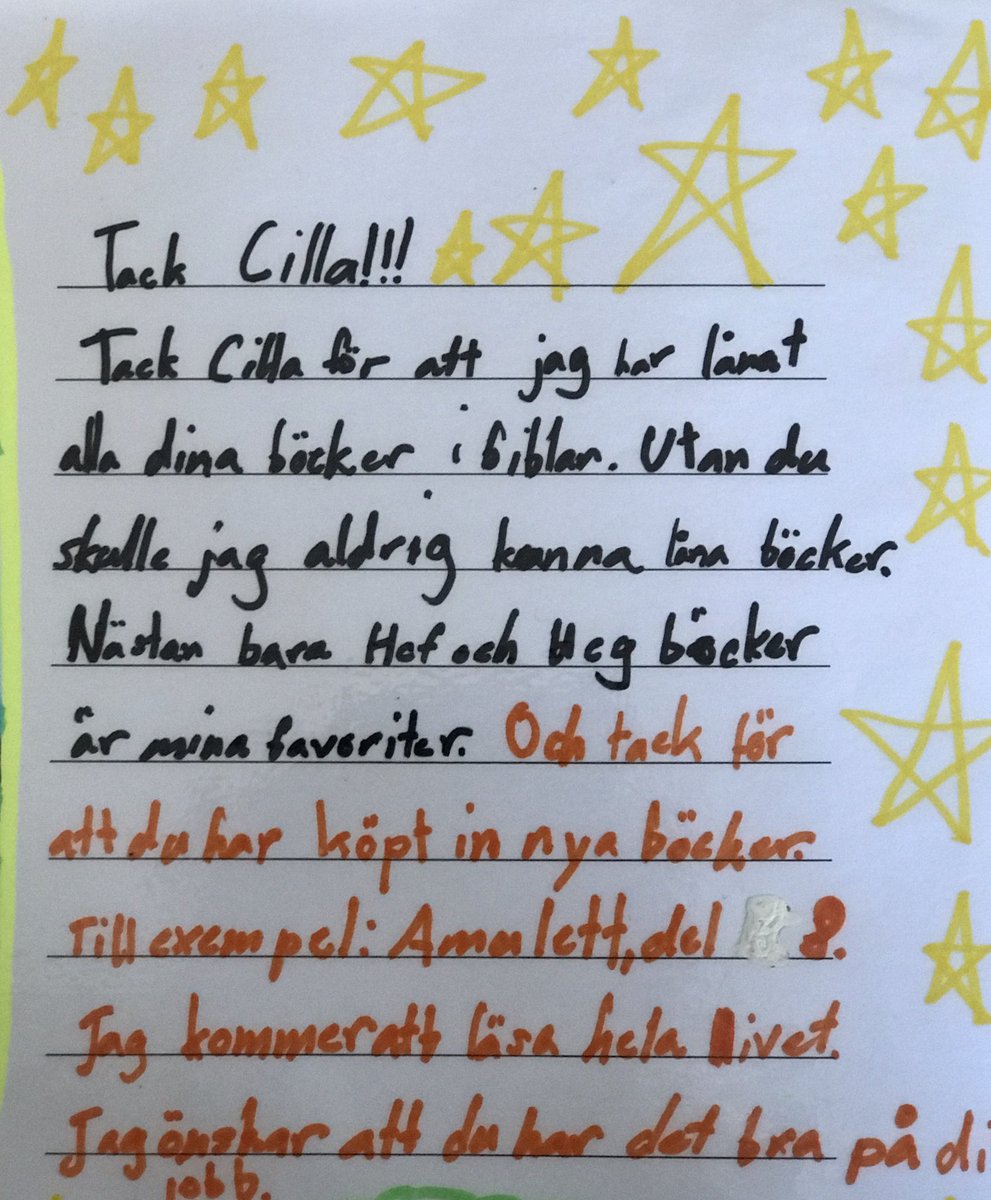 Tack Cilla!!!
Tack Cilla för att jag har lånat
alla dina böcker i biblan. Utan du
skulle jag aldrig kunna låna böcker.
Nästan bara Hcf och Hcg böcker
är mina favoriter. Och tack för
att du har köpt in nya böcker.
Till exempel: Amulett, del 8.
Jag kommer att läsa hela livet.
Jag önskar att du har det bra på di
jobb.